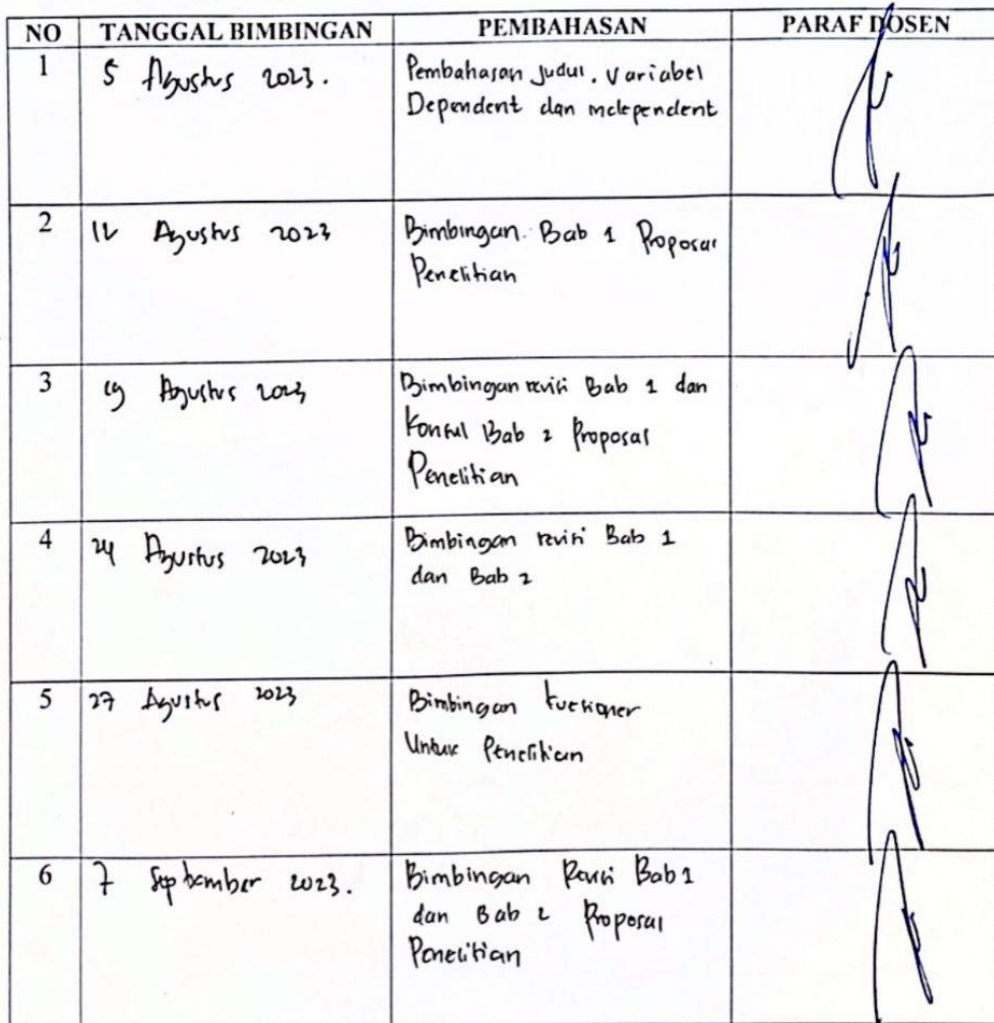 NO TANGGAL BIMBINGAN PEMBAHASAN PARAF DOSEN
1 5 Agustus 2023. Pembahasan judul. Variabel
Dependent dan independent
2 12 Agustus 2023 Bimbingan. Bab 1 Proposal
Penelitian
3 19 Agustus 2023 Bimbingan revisi Bab 1 dan
Konsul Bab 2 Proposal
Penelitian
4 24 Agustus 2023 Bimbingan revisi Bab 1
dan Bab 2
5 27 Agustus 2023 Bimbingan kuesioner
Untuk Penelitian
6 7 September 2023. Bimbingan Revisi Bab 1
dan Bab 2 Proposal
Penelitian